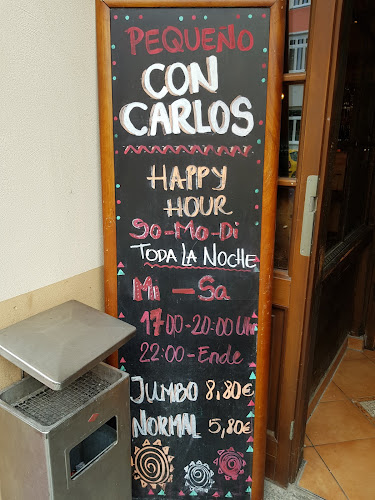 PEQUEÑO
CON
CARLOS
HAPPY
HOUR
So-Mo-Di
TODA LA NOCHE
Mi - Sa
17:00-20:00 Uhr
22:00-Ende
JUMBO 8,80€
NORMAL 5,80€